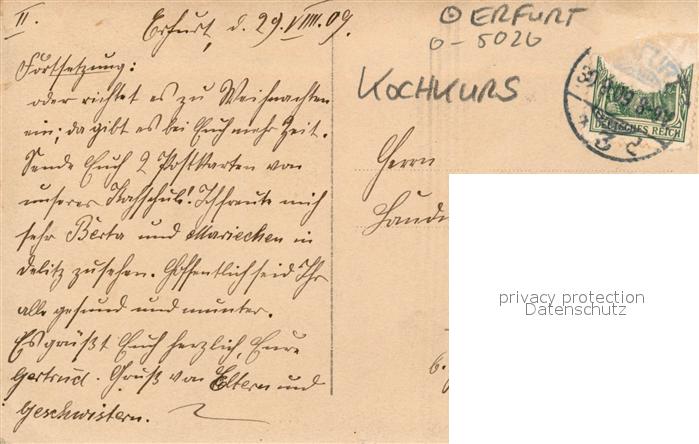 II. Erfurt, d. 29. VIII. 09.
Fortsetzung:
oder richtet es zu Weihnachten
ein; da gibt es bei Euch mehr Zeit.
Sende Euch 2 Postkarten von
unserer Kochschule! Ich freute mich
sehr Berta und Mariechen in
Delitz zu sehen. Hoffentlich seid Ihr
alle gesund und munter.
Es grüßt Euch herzlich, Eure
Gertrud. Gruß von Eltern und
Geschwistern.
ERFURT
0-5020
KOCHKURS
DEUTSCHES REICH
Herrn
privacy protection
Datenschutz